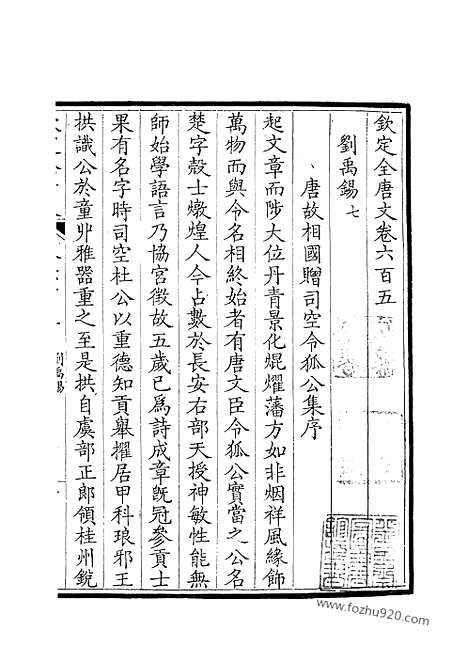 欽定全唐文卷六百五
劉禹錫 七
唐故相國贈司空令狐公集序
起文章而陟大位丹青景化焜燿藩方如非烟祥風緣飾
萬物而與令名相終始者有唐文臣令狐公實當之公名
楚字殼士燉煌人今占數於長安右部天授神敏性能無
師始學語言乃協宮徵故五歲已為詩成章旣冠參貢士
果有名字時司空杜公以重德知貢舉擢居甲科琅邪王
拱識公於童丱雅器重之至是拱自虞部正郎領桂州鋭
劉禹錫
www.fozhu920.com